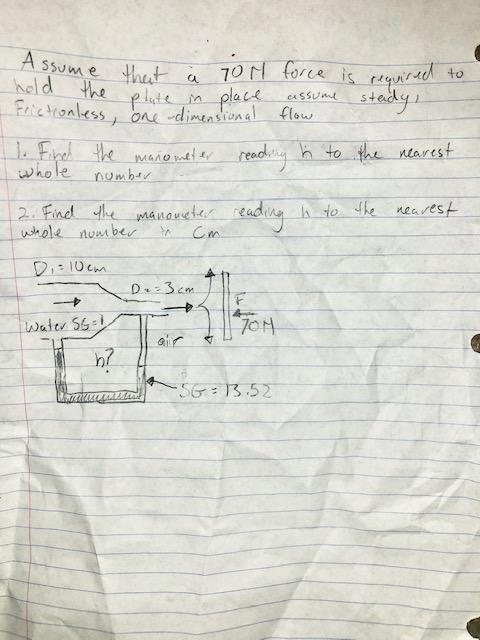 Assume that a 70N force is required to
hold the plate in place assume steady,
Frictionless, one-dimensional flow
1. Find the manometer reading h to the nearest
whole number
2. Find the manometer reading h to the nearest
whole number in Cm
D1 = 10cm
D2 = 3cm
F
70N
Water SG=1
air
h?
SG = 13.52